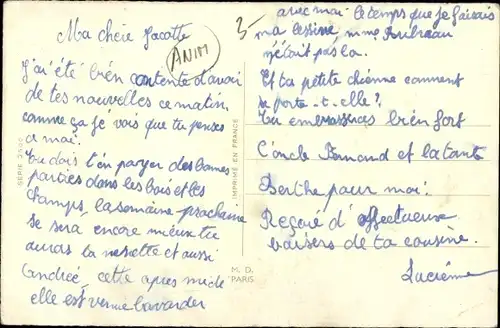 Ma chère Jacotte
J'ai été bien contente d'avoir
de tes nouvelles ce matin,
comme ça je vois que tu penses
a moi.
Tu dois t'en payer des bonnes
parties dans les bois et les
champs, la semaine prochaine
se sera encore mieux tu
auras la et aussi
Andrée, cette apres midi
elle est venue bavarder
ANIM
SÉRIE
IMPRIMÉ EN FRANCE
M. D.
PARIS
3-
avec moi le temps que je faisais
ma lessive, mme
n'était pas la.
Et ta petite chienne comment
se porte-t-elle?
Tu embrasseras bien fort
l'oncle Fernand et la tante
Berthe pour moi.
Reçoie d'affectueux
baisers de ta cousine.
Lucienne